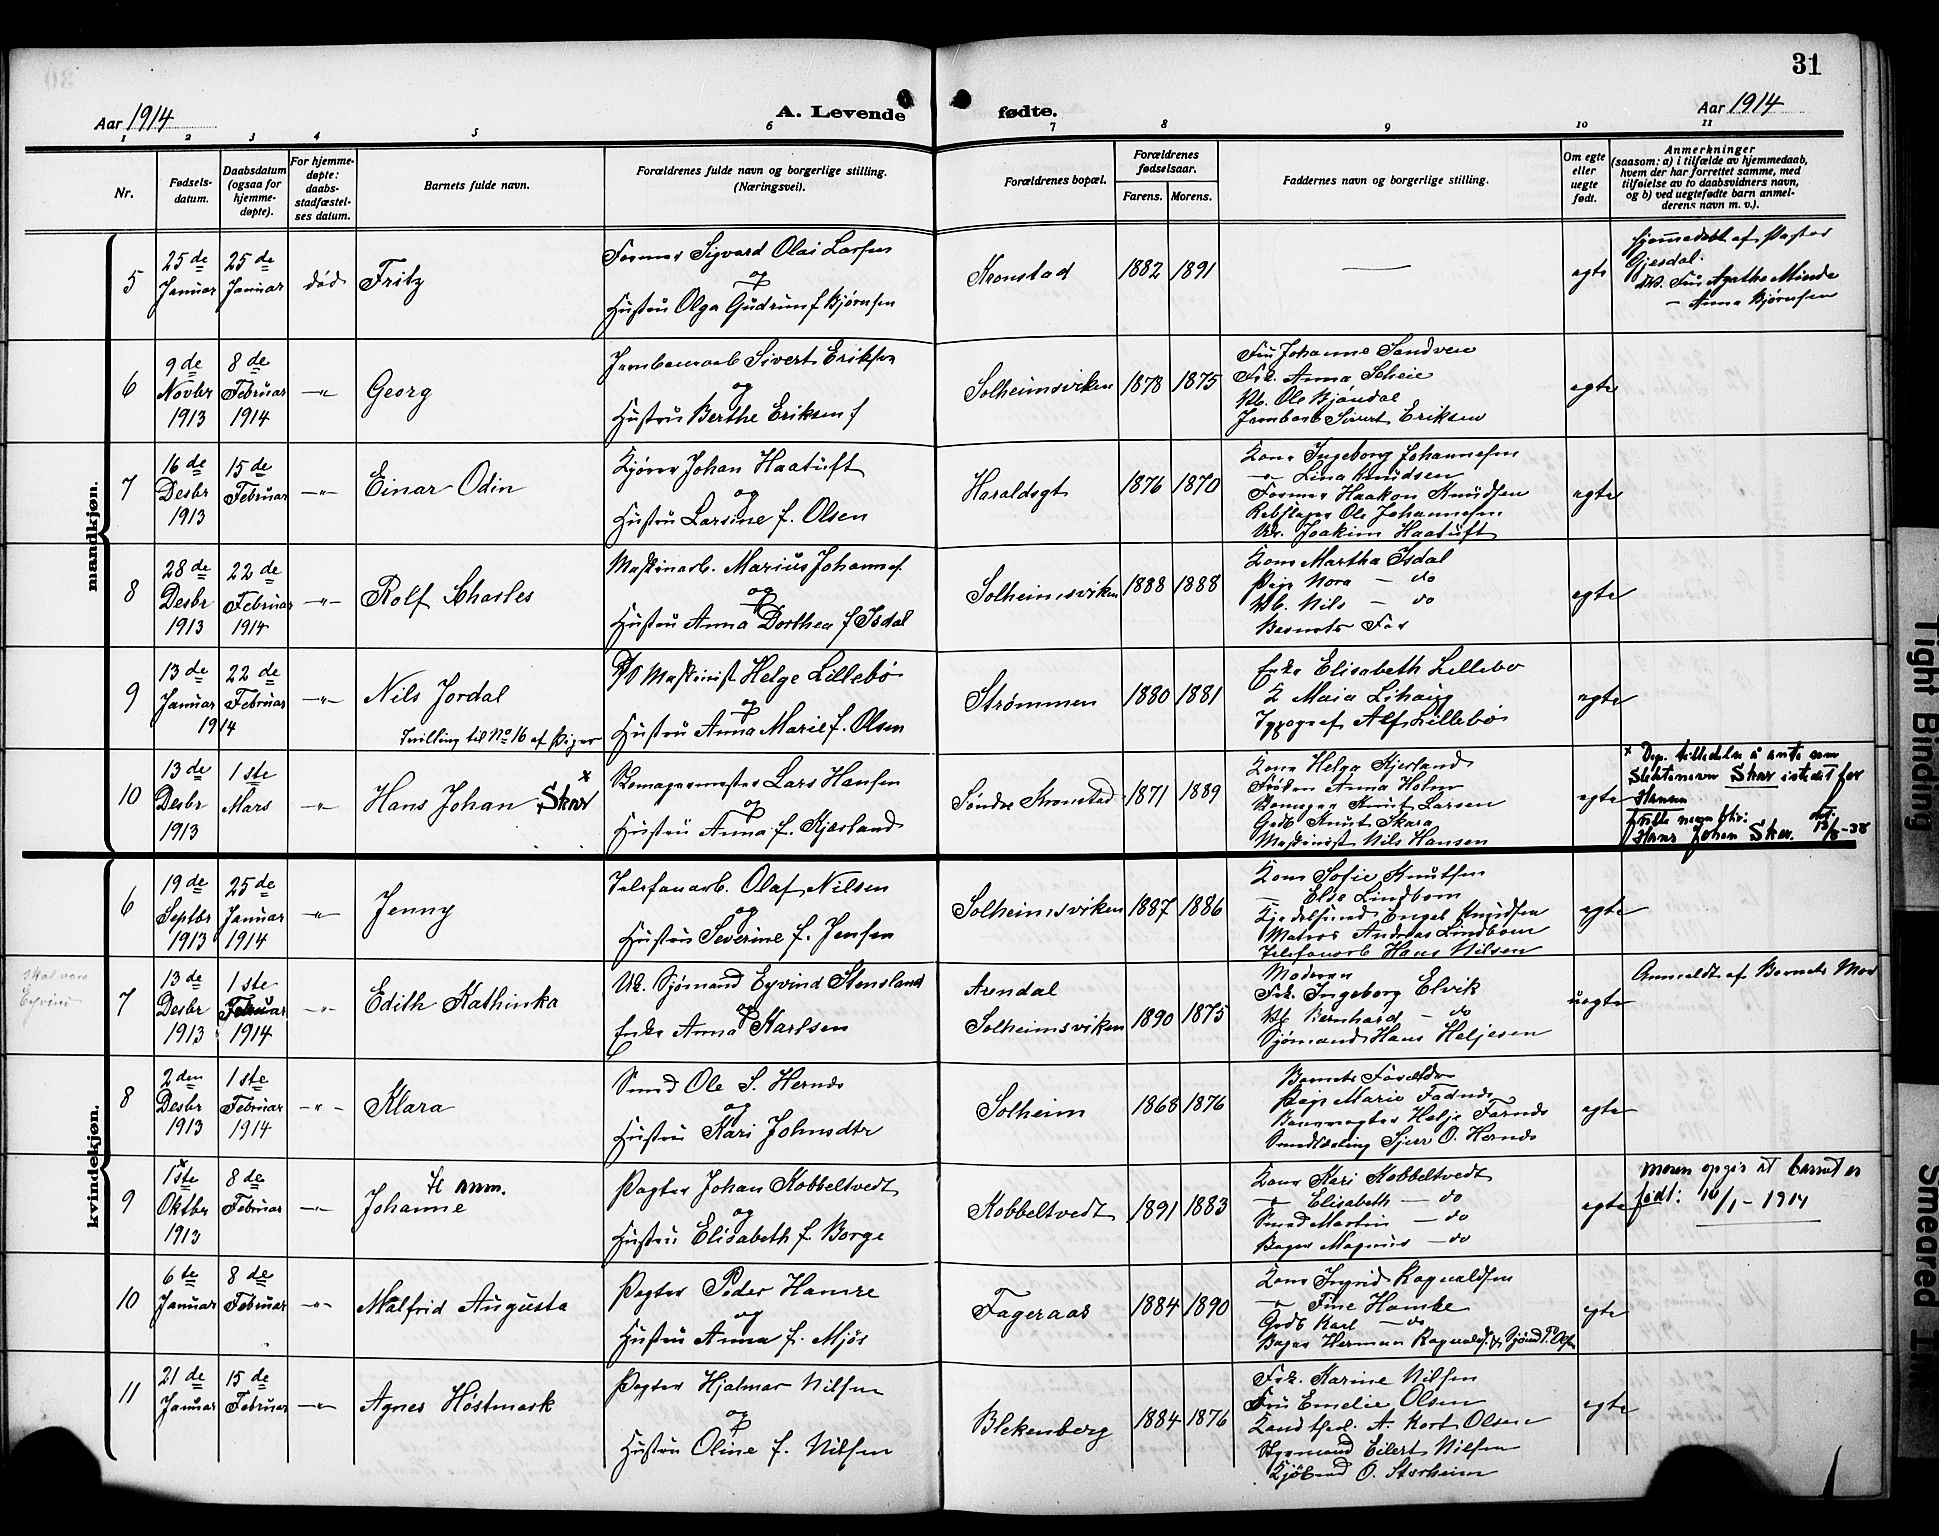 31
Aar 1914
A. Levende fødte.
Aar 1914
1 2 3 4 5 6 7 8 9 10 11
Nr.
Fødsels-
datum.
Daabsdatum
(ogsaa for
hjemme-
døpte).
For hjemme-
døpte:
daabs-
stadfæstel-
ses datum.
Barnets fulde navn.
Forældrenes fulde navn og borgerlige stilling.
(Næringsvei).
Forældrenes bopæl.
Forældrenes
fødselsaar.
Farens. Morens.
Faddernes navn og borgerlige stilling.
Om egte
eller
uegte
født.
Anmerkninger
(saasom: a) i tilfælde av hjemmedaab,
hvem der har forrettet samme, med
tilføielse av to daabsvidners navn,
og b) ved uegtefødte barn anmel-
derens navn m. v.).
mandkjøn.
5
25de
Januar
25de
Januar
død
Fritz
Former Sigvard Olai Larsen
og
Hustru Olga Gudrun f Bjørnsen
Kronstad
1882 1891
—
egte
Hjemmedøbt af Pastor
Gjesdal.
Fru Agathe Minde
— Anna Bjørnsen
6
9de
Novbr
1913
8de
Februar
1914
—"—
Georg
Jernbanearb Sivert Eriksen
og
Hustru Berthe Eriksen f
Solheimsviken
1878 1875
Fru Johanne Sandven
Frk. Anna Scheie
Ub. Ole Bjøndal
Jernbarb Sivert Eriksen
egte
7
16de
Desbr
1913
15de
Februar
—"—
Einar Odin
Kjører Johan Haatuft
og
Hustru Larsine f. Olsen
Haraldsgt
1876 1870
Kone Ingeborg Johannesen
—"— Lina Knudsen
Former Haakon Knudsen
Rebslager Ole Johannesen
Uk. Joakim Haatuft
egte
8
28de
Desbr
1913
22de
Februar
1914
—"—
Rolf Charles
Maskinarb. Marius Johannes.
og
Hustru Anna Dorthea f Isdal
Solheimsviken
1888 1888
Kone Martha Isdal
Pige Nora — do
Ub. Nils — do
Barnets Far
egte
9
13de
Januar
1914
22de
Februar
—"—
Nils Jordal
Tvilling til No 16 af Piger
D/S Maskinist Helge Lillebø
og
Hustru Anna Marie f. Olsen
Strømmen
1880 1881
Enke Elisabeth Lillebø
K Maia Lihaug
Typograf Alf Lillebø
egte
10
13de
Desbr
1913
1ste
Mars
—"—
Hans Johan Skar x
Somagermester Lars Hansen
og
Hustru Anna f. Kjerland
Søndre Kronstad
1871 1889
Kone Helga Kjerland
Frøken Anna Holm
Somager Knut Larsen
Gdb Knut Skara
Maskinist Nils Hansen
egte
x Dep. tilladelse å anta som
slektsnavn Skar istedet for
Hansen
Fulle navn blir:
Hans Johan Skar. 13/8-38
kvindekjøn.
6
19de
Septbr
1913
25de
Januar
1914
—"—
Jenny
Telefonarb. Olaf Nilsen
og
Hustru Severine f. Jensen
Solheimsviken
1887 1886
Kone Sofie Knutsen
— Else Lindbom
Kjedelsmed Engel Knudsen
Matros Andreas Lindbom
Telefonarb Hans Nilsen
egte
skal være
Eyvind
7
13de
Desbr
1913
1ste
Februar
1914
—"—
Edith Kathinka
Uk. Sjømand Eyvind Stensland
og
Enke Anna Karlsen
Arendal
Solheimsviken
1890 1875
Moderen
Frk. Ingeborg Elvik
Ub. Bernhard — do
Sjømand Hans Heljesen
uegte
Anmeldt af Barnets Mor
8
2den
Desbr
1913
1ste
Februar
1914
—"—
Klara
Smed Ole S. Hernes
og
Hustru Kari Johnsdtr
Solheim
1868 1876
Barnets Forældre
Pige Marie Fadnes
Banevogter Helje Farnes
Smedlærling Sjur O. Hernes
egte
9
1ste x
Oktbr
1913
8de
Februar
—"—
Johanne
Pagter Johan Kobbeltvedt
og
Hustru Elisabeth f Borge
Kobbeltvedt
1891 1883
Kone Kari Kobbeltvedt
—"— Elisabeth — do
Smed Martin — do
Bager Magnus — do
egte
moren opgir at barnet er
født: 10/1-1914
10
6te
Januar
8de
Februar
—"—
Malfrid Augusta
Pagter Peder Hamre
og
Hustru Anna f. Mjøs
Fageraas
1884 1890
Kone Ingrid Ragnvaldsen
—"— Fine Hamre
Gdb Karl — do
Bager Herman Ragnvalds. & Sjømd P. Olsen
egte
11
21de
Januar
15de
Februar
—"—
Agnes Høstmark
Pagter Hjalmar Nilsen
og
Hustru Oline f. Nilsen
Blekenberg
1884 1876
Frk. Karine Nilsen
Fru Emelie Olsen
Kand. theol. A. Kort Olsen
Styrmand Eilert Nilsen
Kjøbmd O. Storheim
egte
Tight Binding
Smeared Ink